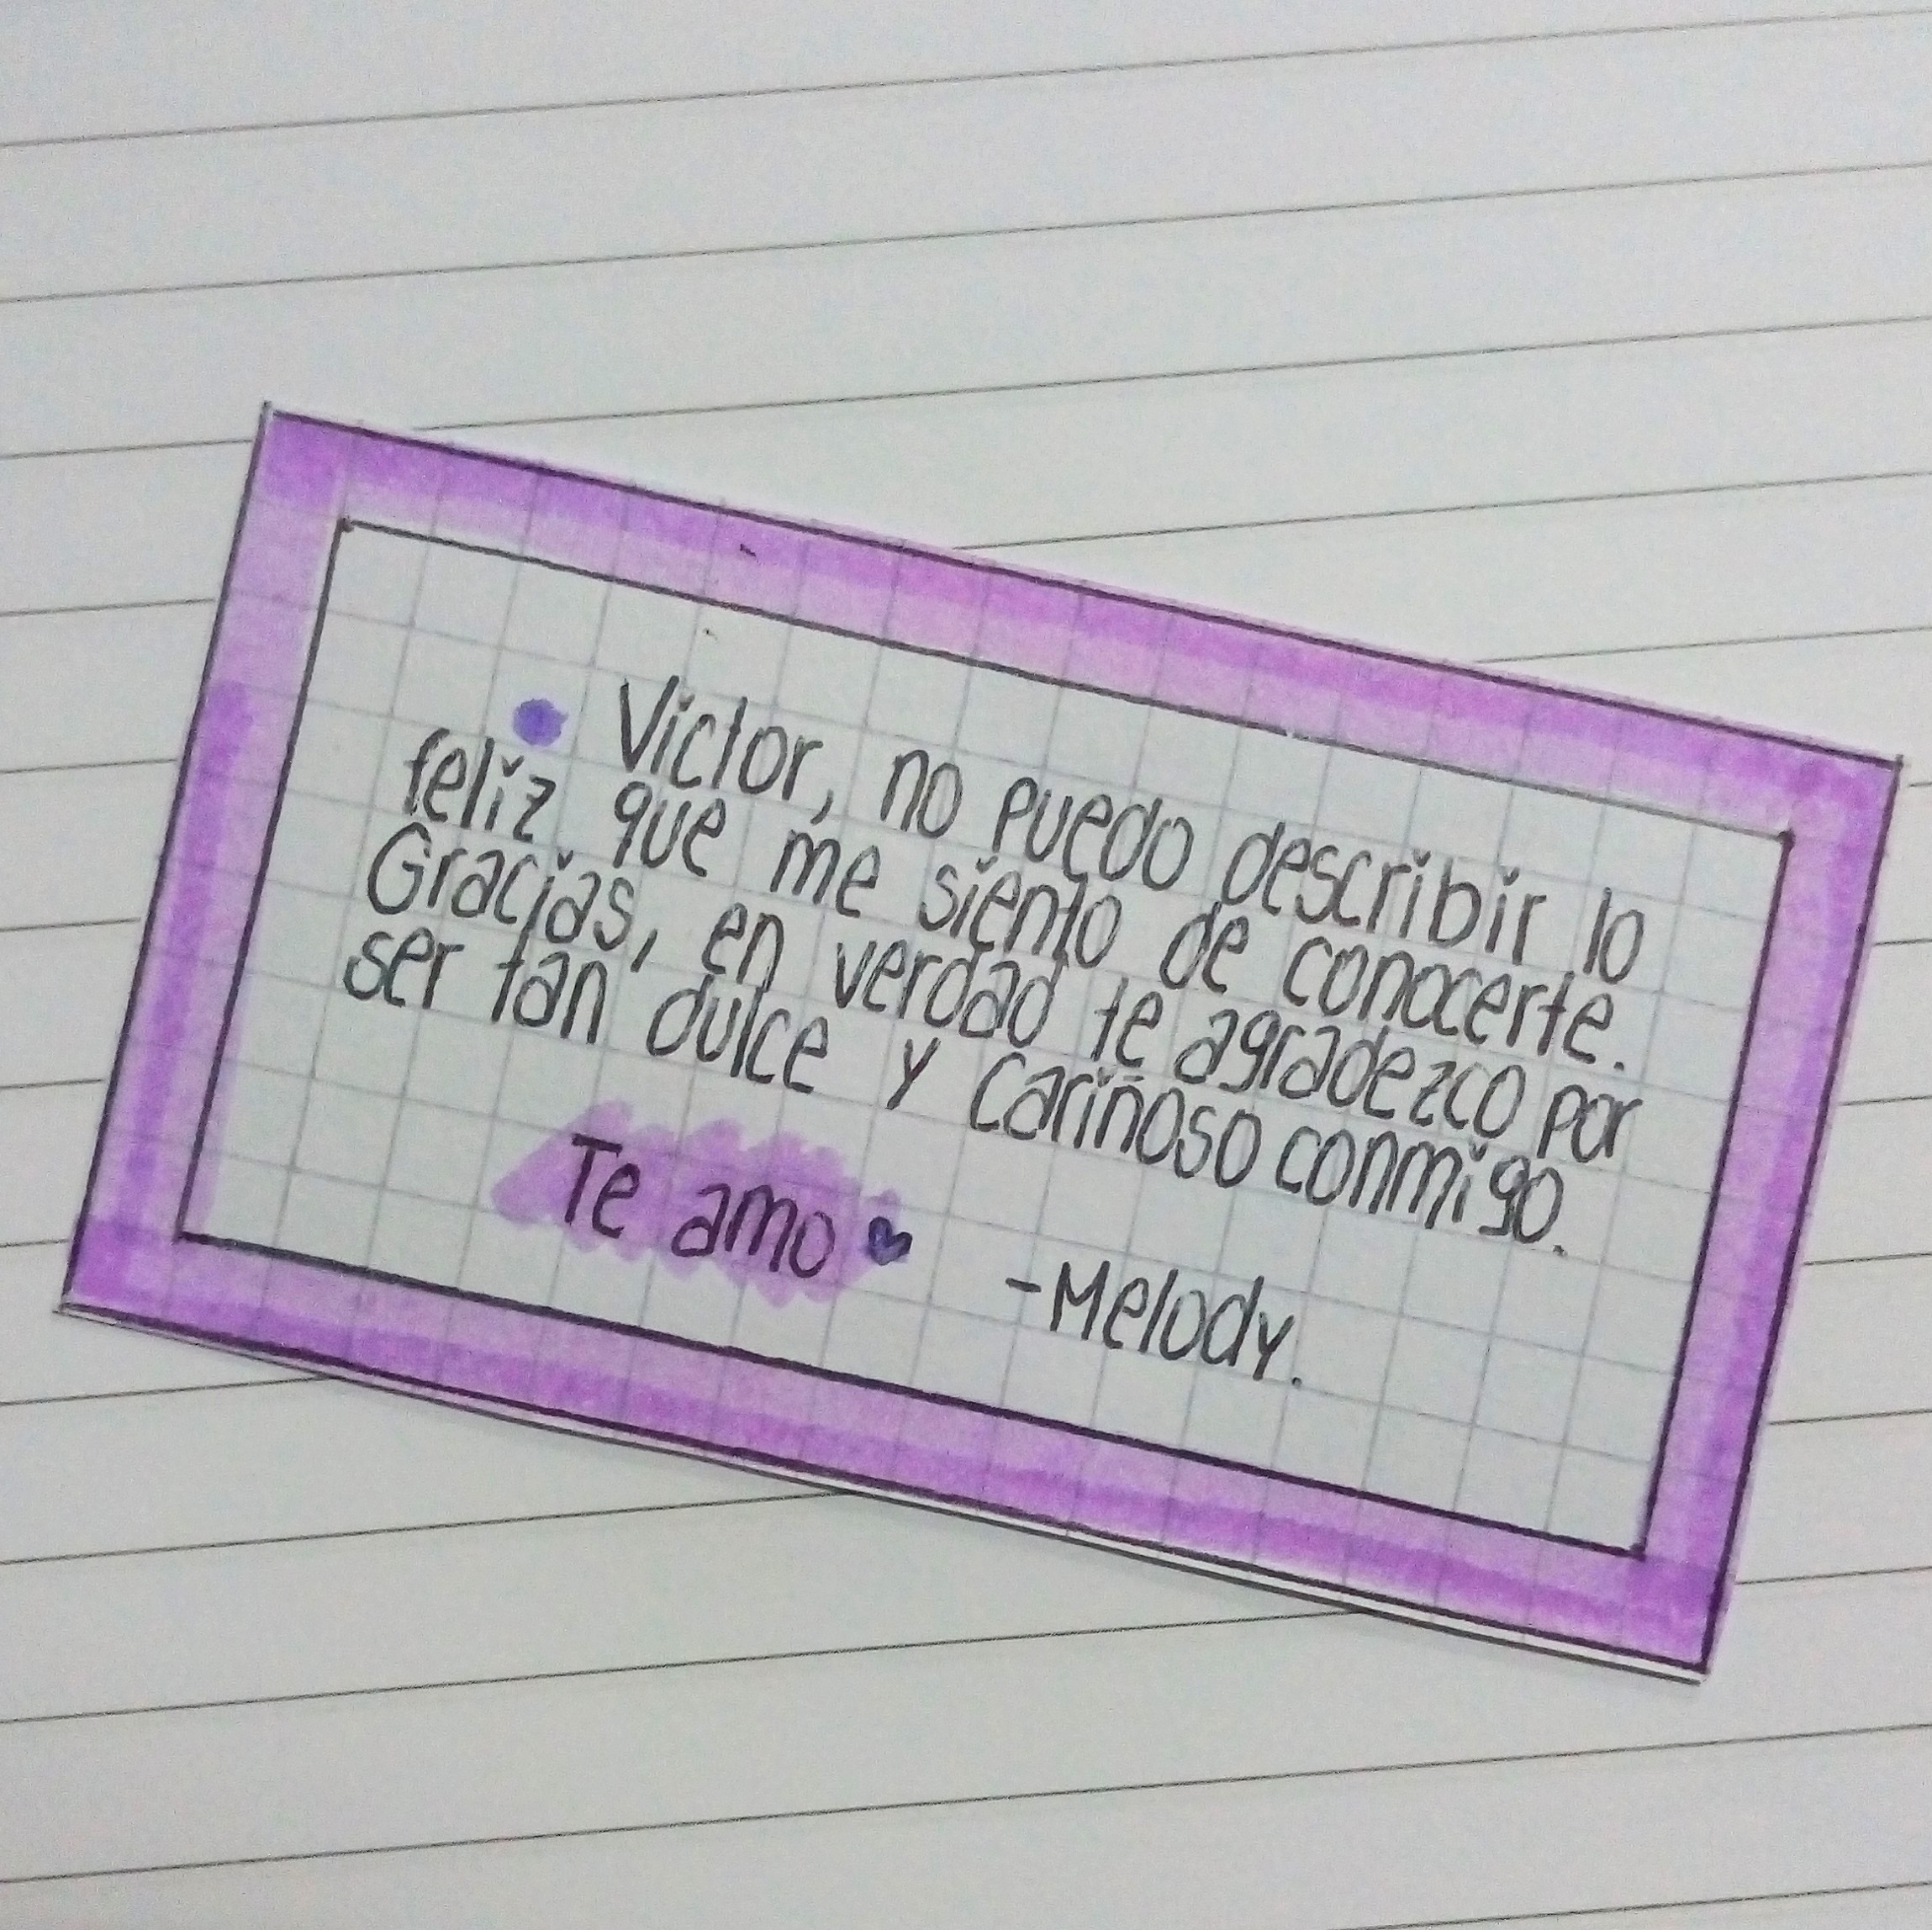 Victor, no puedo describir lo
feliz que me siento de conocerte.
Gracias, en verdad te agradezco por
ser tan dulce y cariñoso conmigo.
Te amo
-Melody.